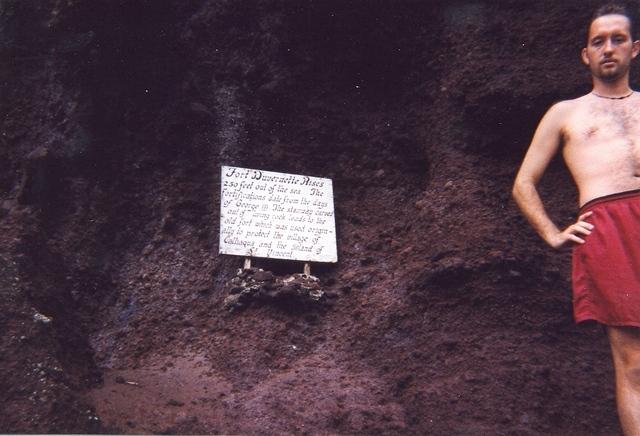 Fort Duvernette Rises
250 feet out of the sea The
fortifications date from the days
of George III The stairway carved
out of living rock leads to the
old fort which was used origin-
ally to protect the village of
Calliaqua and the island of
St Vincent